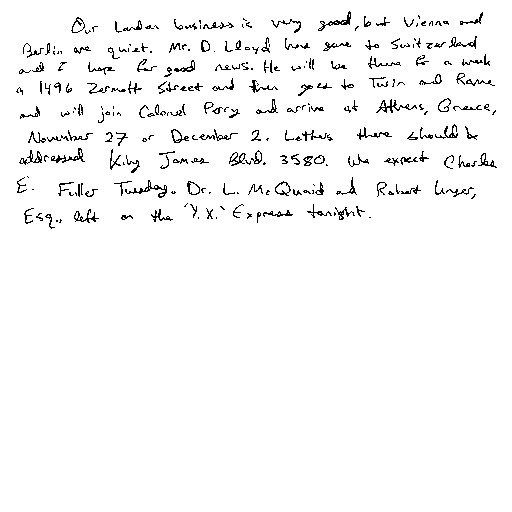 Our London business is very good, but Vienna and
Berlin are quiet. Mr. D. Lloyd have gone to Switzerland
and I hope for good news. He will be there for a week
a 1496 Zermott Street and then goes to Turin and Rome
and will join Colonel Perry and arrive at Athens, Greece,
November 27 or December 2. Letters there should be
addressed King James Blvd. 3580. We expect Charles
E. Fuller Tuesday. Dr. L. McQuaid and Robert Unger,
Esq., left on the 'Y.X.' Express tonight.